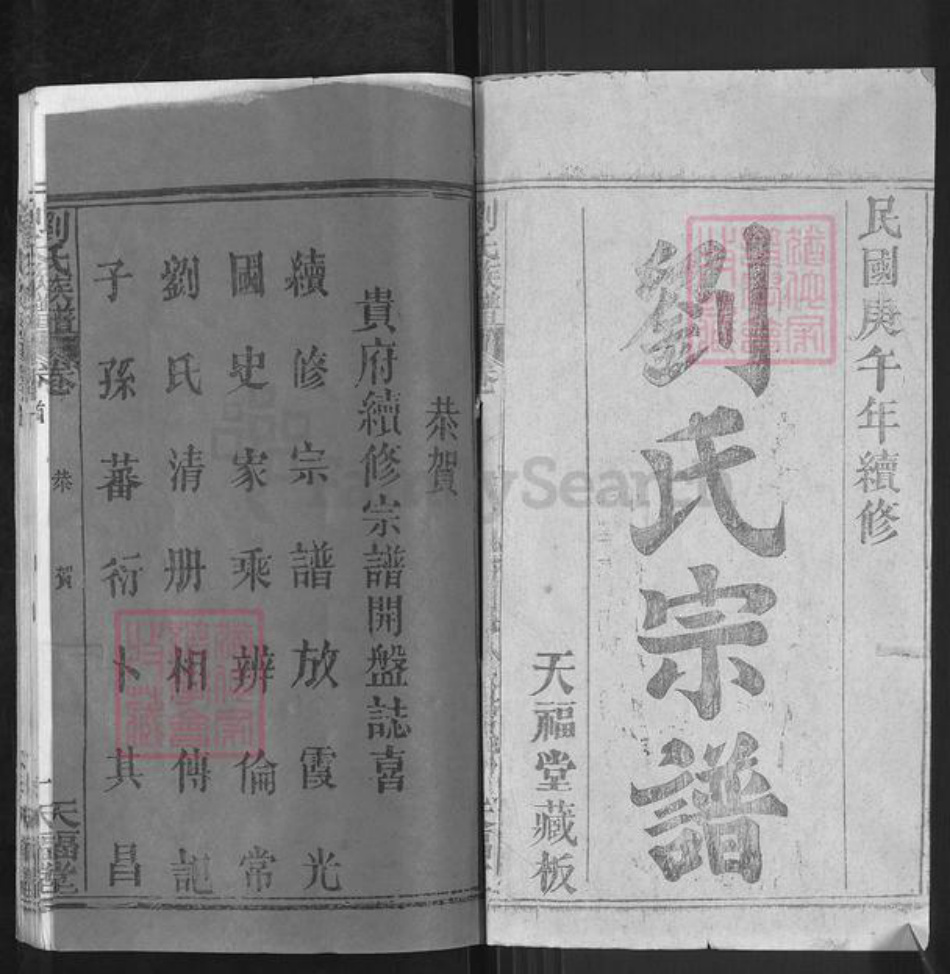 民國庚午年續修
劉氏宗譜
天福堂藏板
恭賀
貴府續修宗譜開盤誌喜
續修宗譜放霞光
國史家乘辨倫常
劉氏清册相傳記
子孫蕃衍卜其昌
劉氏宗譜
卷首
恭賀
天福堂
FamilySearch